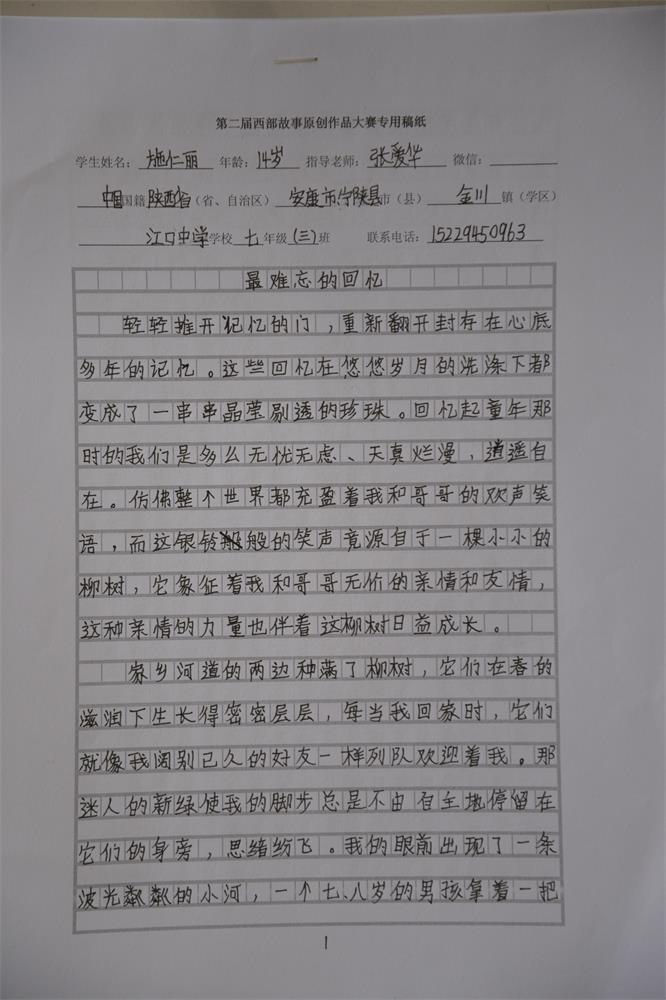 第二届西部故事原创作品大赛专用稿纸
学生姓名：施仁丽 年龄：14岁 指导老师：张爱华 微信：
中国国籍陕西省（省、自治区）安康市宁陕县市（县）金川镇（学区）
江口中学学校七年级（三）班 联系电话：15229450963
最难忘的回忆
轻轻推开记忆的门，重新翻开封存在心底
多年的记忆。这些回忆在悠悠岁月的洗涤下都
变成了一串串晶莹剔透的珍珠。回忆起童年那
时的我们是多么无忧无虑、天真烂漫，逍遥自
在。仿佛整个世界都充盈着我和哥哥的欢声笑
语，而这银铃般的笑声竟源自于一棵小小的
柳树，它象征着我和哥哥无价的亲情和友情，
这种亲情的力量也伴着这柳树日益成长。
家乡河道的两边种满了柳树，它们在春的
滋润下生长得密密层层，每当我回家时，它们
就像我阔别已久的好友一样列队欢迎着我。那
迷人的新绿使我的脚步总是不由自主地停留在
它们的身旁，思绪纷飞。我的眼前出现了一条
波光粼粼的小河，一个七、八岁的男孩拿着一把
1